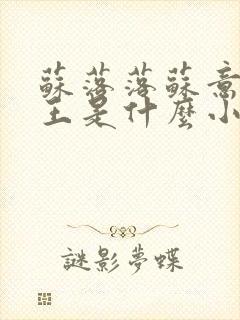 蘇落落蘇意
王是什麼小
謎影夢蝶